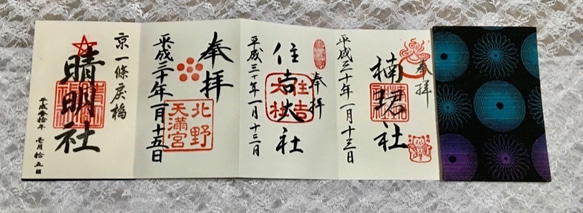 奉拝
楠珺社
平成三十年一月十三日
奉拝
住吉大社
住吉大社
平成三十年一月十三日
奉拝
北野
天満宮
平成三十年一月十五日
京一條戻橋
晴明社
平成三十年 壱月拾五日